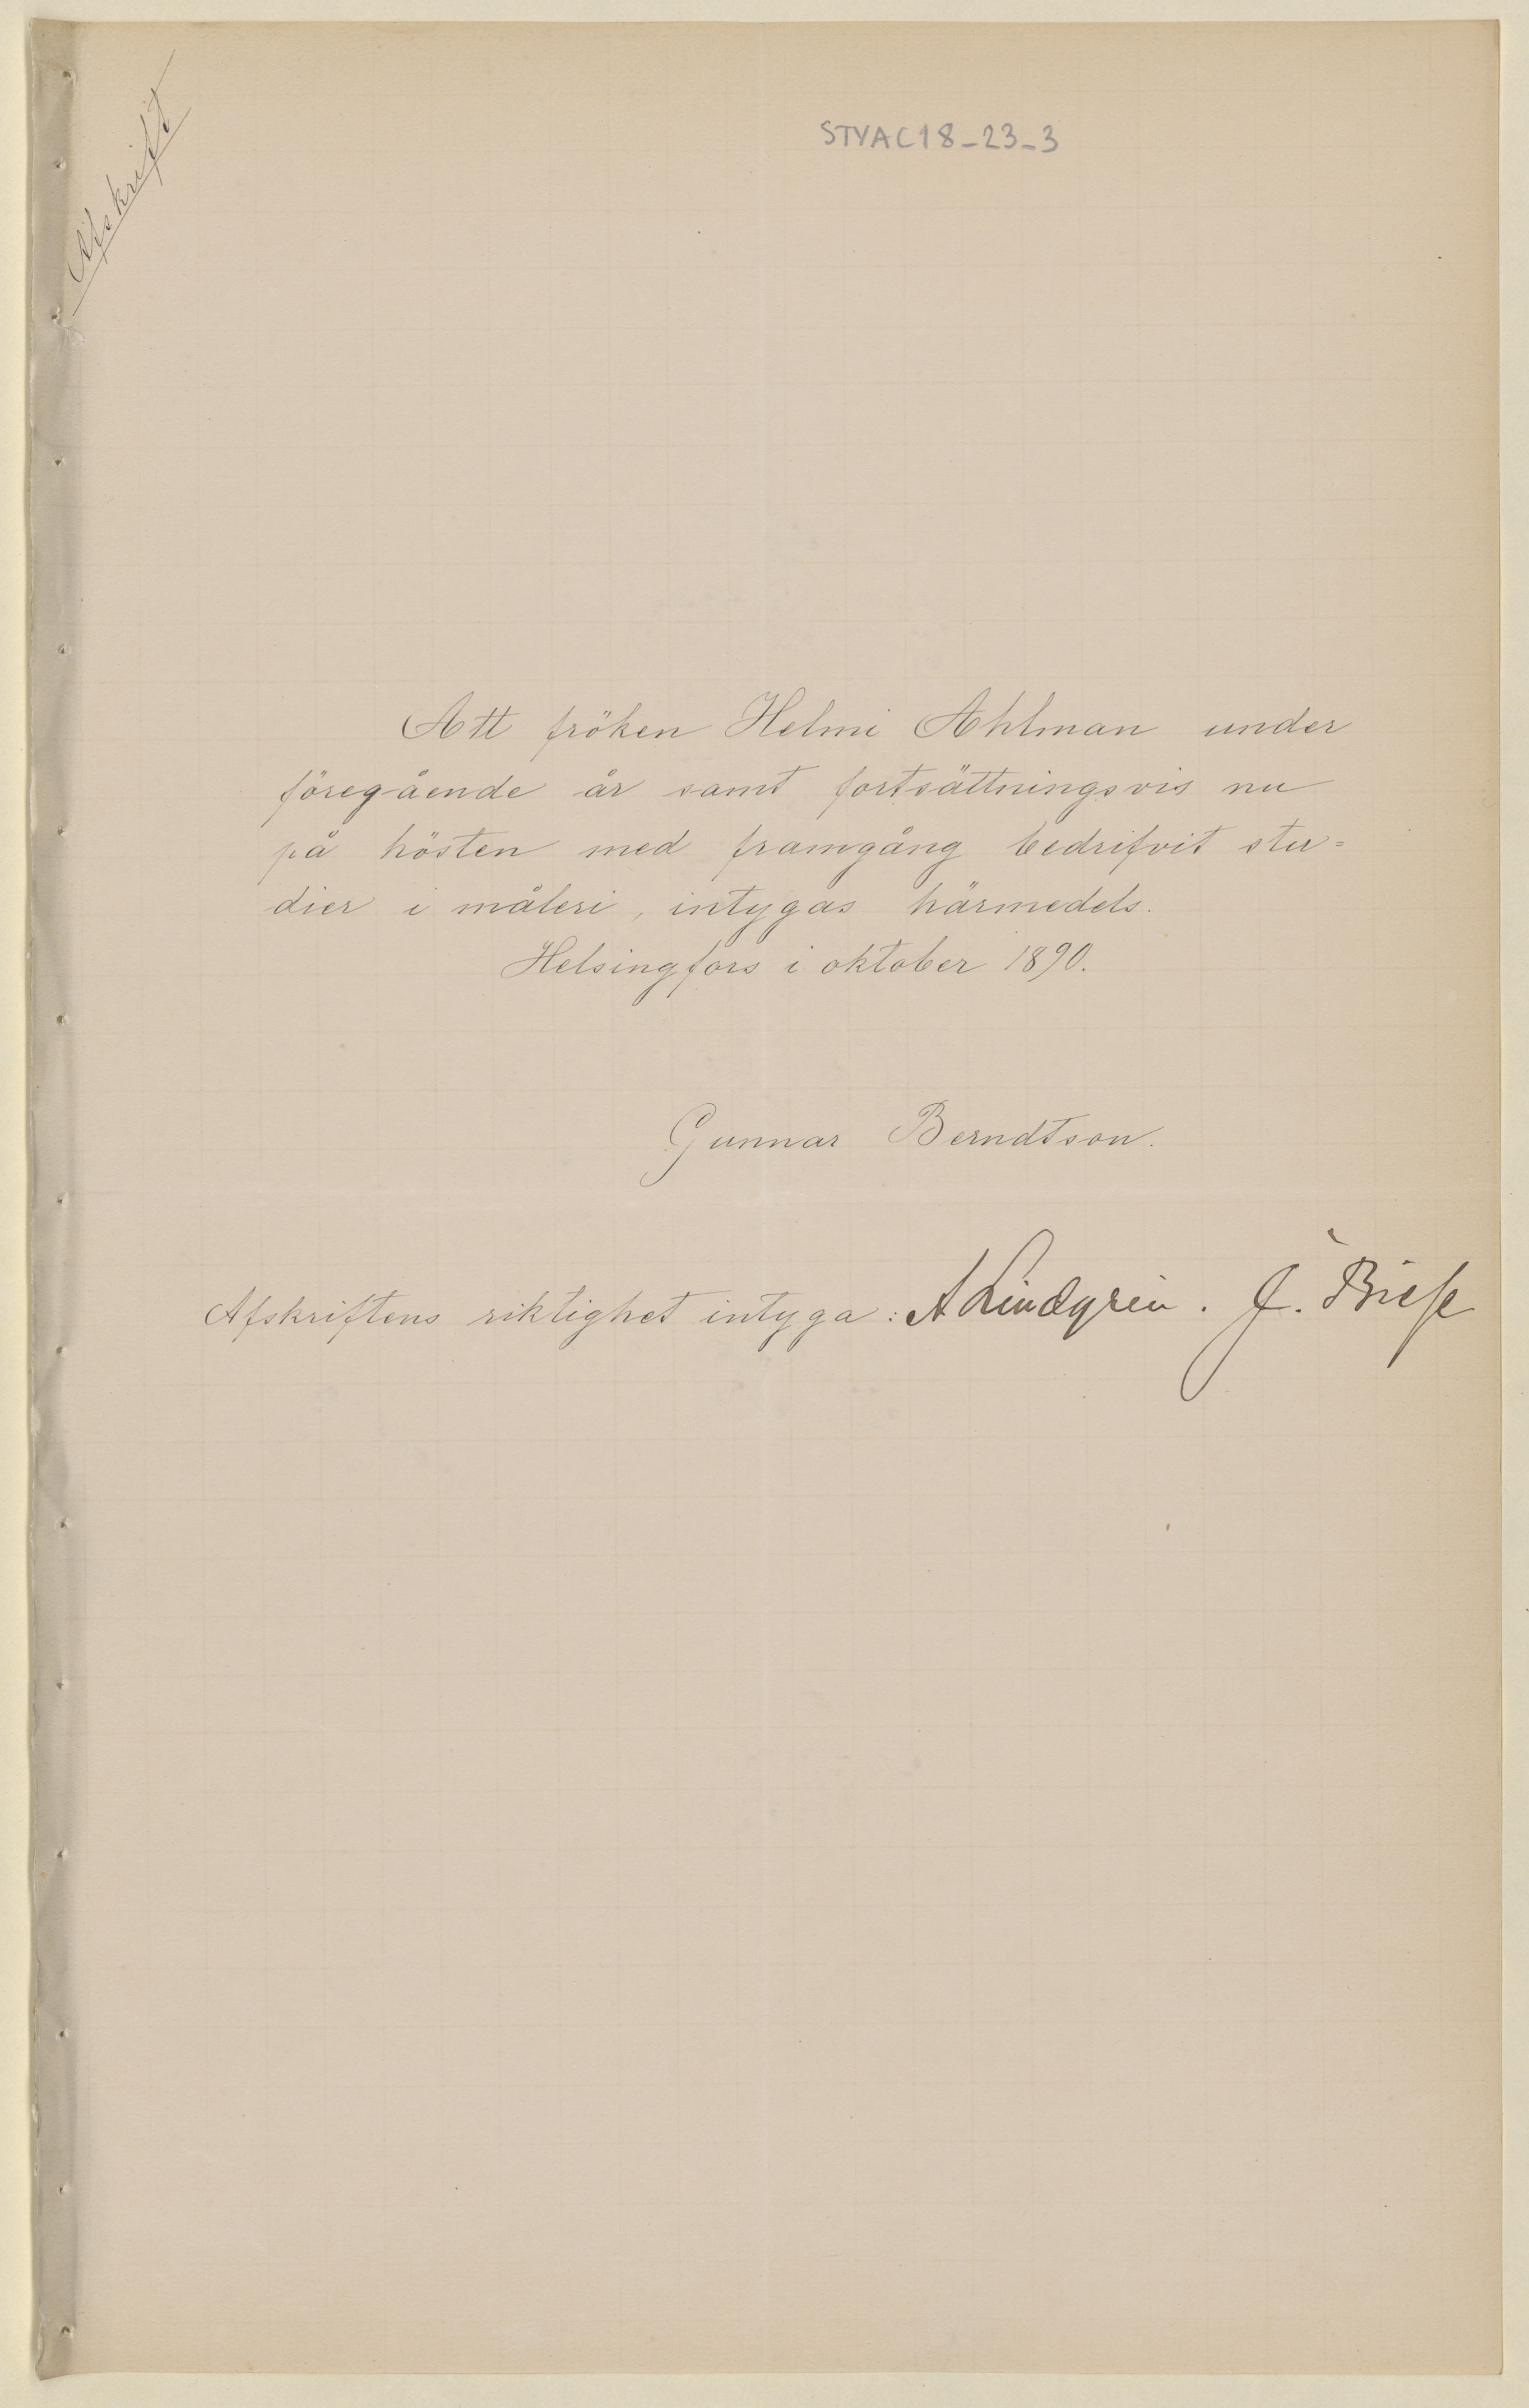 Afskrift
STYAC18_23_3
Att fröken Helmi Ahlman under
föregående år samt fortsättningsvis nu
på hösten med framgång bedrifvit stu=
dier i måleri, intygas härmedels.
Helsingfors i oktober 1890.
Gunnar Berndtson.
Afskriftens riktighet intyga: A Lindgren. J. Biese